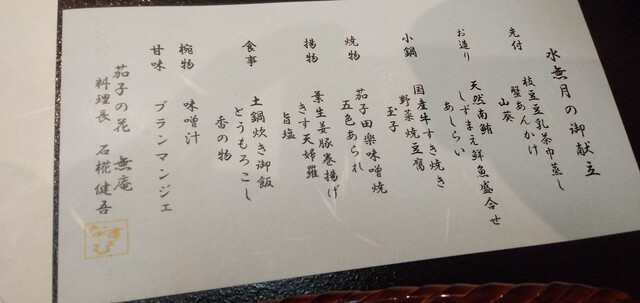 水無月の御献立
先付
枝豆豆乳茶巾蒸し
蟹あんかけ
山葵
お造り
天然南鮪
しずまえ鮮魚盛合せ
あしらい
小鍋
国産牛すき焼き
野菜焼豆腐
玉子
焼物
茄子田楽味噌焼
五色あられ
揚物
葉生姜豚巻揚げ
きす天婦羅
旨塩
食事
土鍋炊き御飯
とうもろこし
香の物
椀物
味噌汁
甘味
ブランマンジェ
茄子の花 無庵
料理長 石椛健吾
なすび